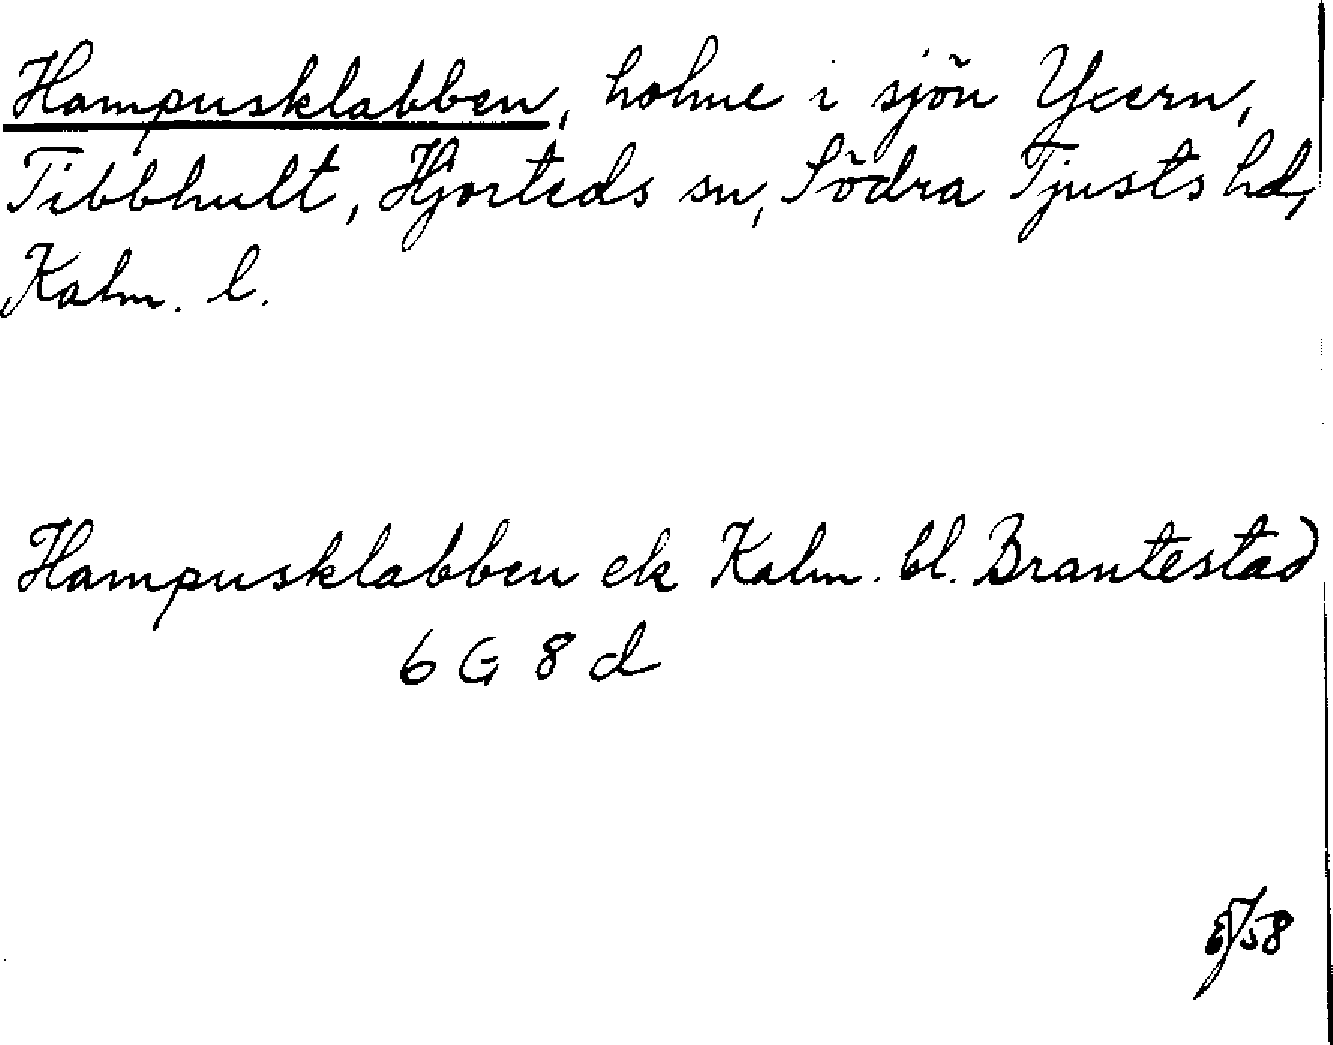 Hampusklabben, holme i sjön Yxern,
Tibbhult, Hjorteds sn, Södra Tjusts hd,
Kalm. l.
Hampusklabben ek Kalm. bl. Brantestad
6 G 8 d
58